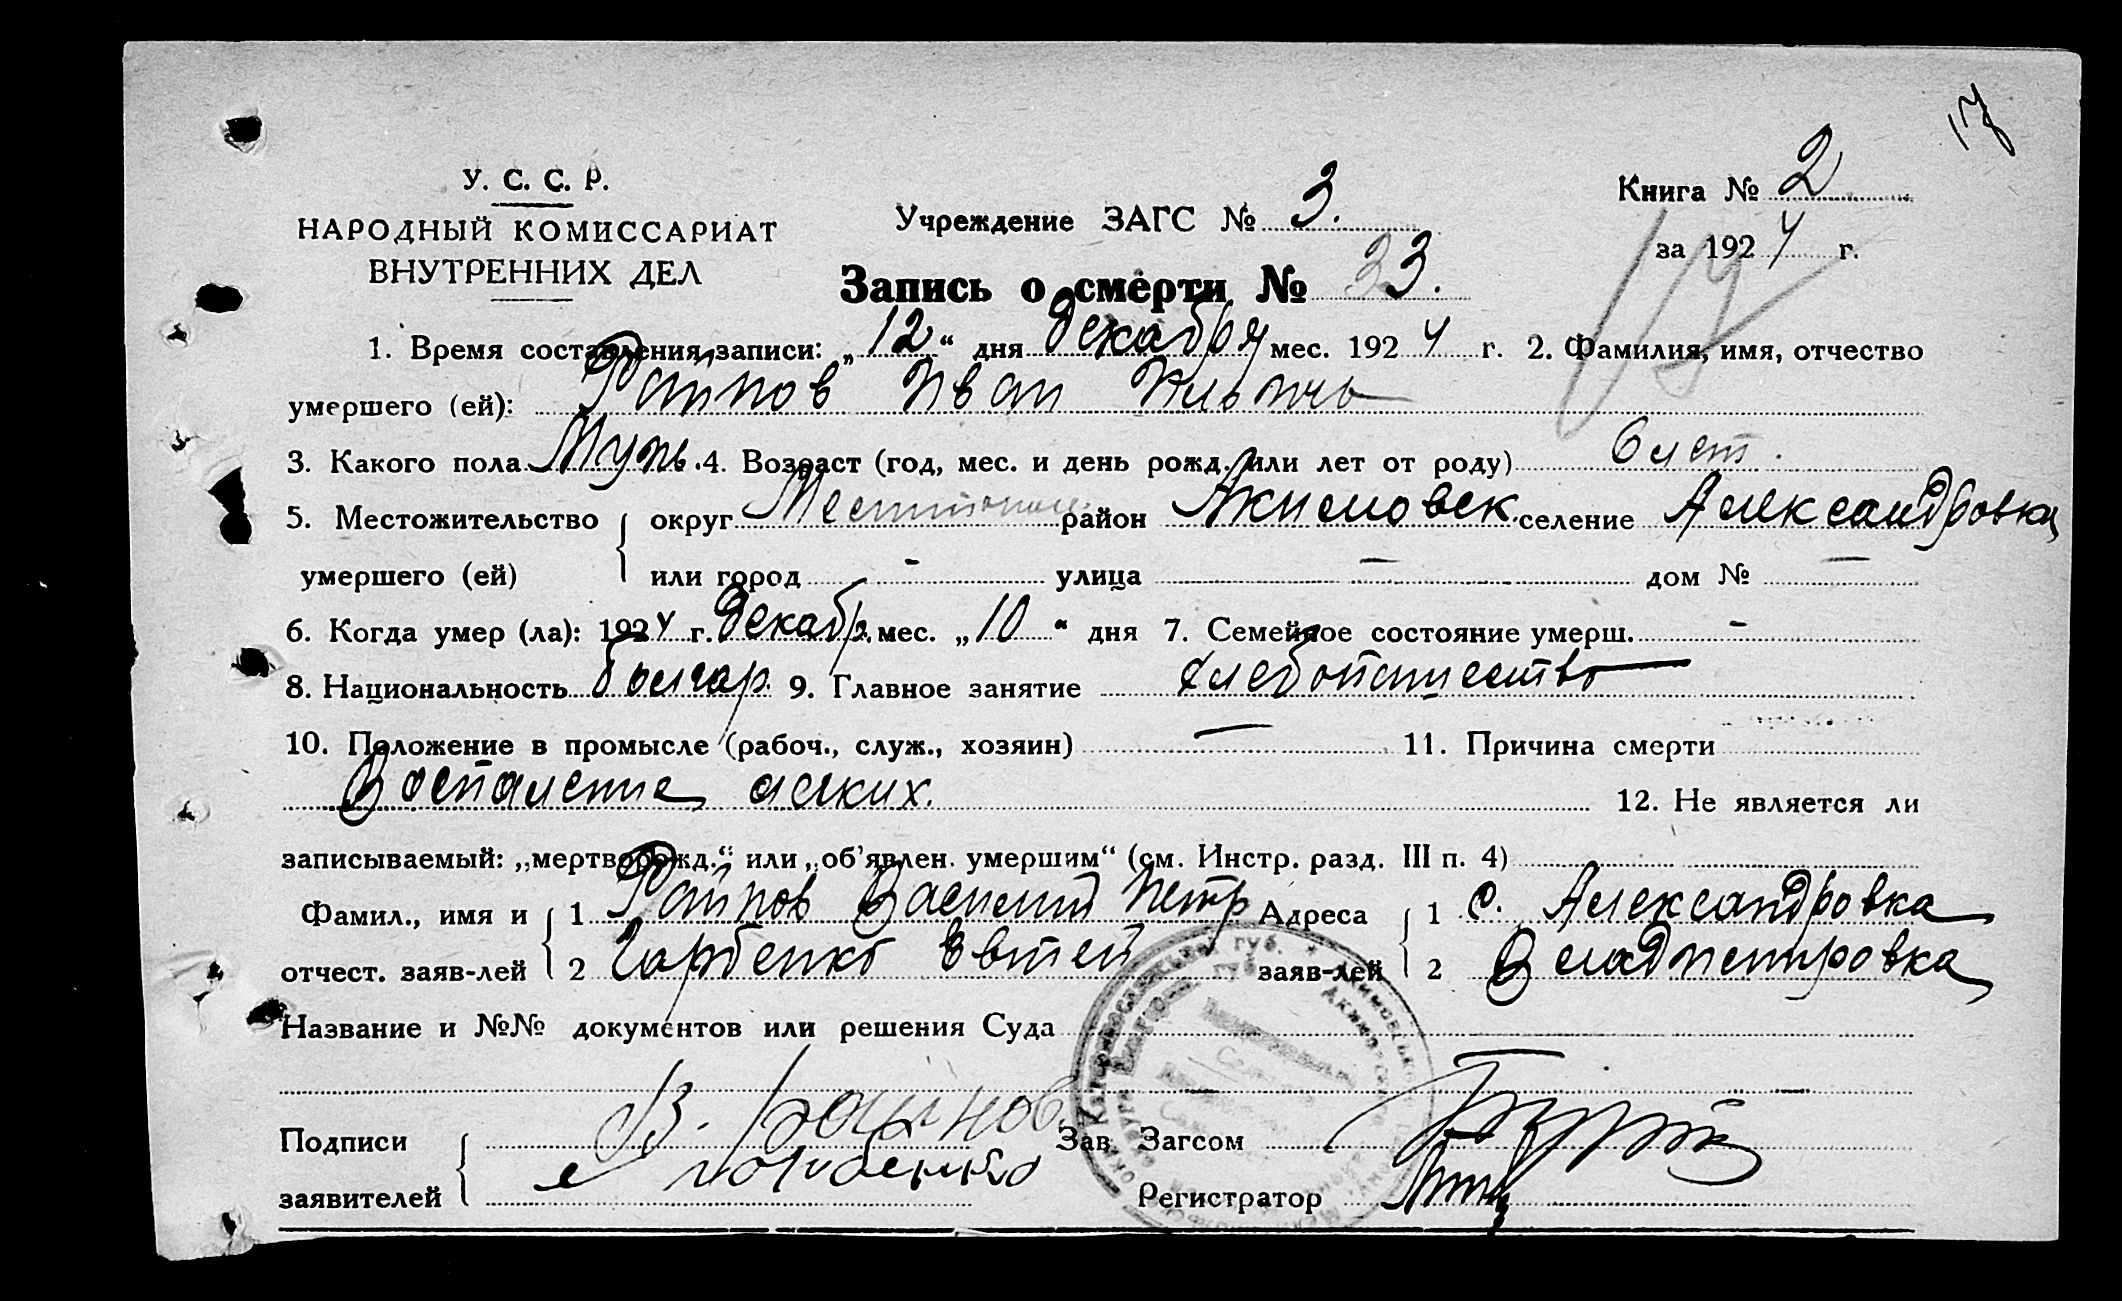 17
У. С. С. Р.
НАРОДНЫЙ КОМИССАРИАТ
ВНУТРЕННИХ ДЕЛ
Учреждение ЗАГС № 3.
Книга № 2
за 1924 г.
Запись о смерти № 33.
1. Время составления записи: „12“ дня декабря мес. 1924 г. 2. Фамилия, имя, отчество
умершего (ей): Райнов Иван
3. Какого пола Муж. 4. Возраст (год, мес. и день рожд. или лет от роду) 6 лет.
5. Местожительство округ район Акимовск. селение Александровка
умершего (ей) или город - улица - дом № -
6. Когда умер (ла): 1924 г. декабр. мес. „10“ дня 7. Семейное состояние умерш. -
8. Национальность болгар. 9. Главное занятие хлебопашество
10. Положение в промысле (рабоч., служ., хозяин) — 11. Причина смерти
Воспаление легких.
12. Не является ли
записываемый: „мертворожд.“ или „об'явлен. умершим“ (см. Инстр. разд. III п. 4)
Фамил., имя и 1 Райнов Василий Петр Адреса 1 с. Александровка
отчест. заяв-лей 2 Горбенко заяв-лей 2
Название и №№ документов или решения Суда
Подписи В. Райнов Зав Загсом
заявителей Горбенко Регистратор